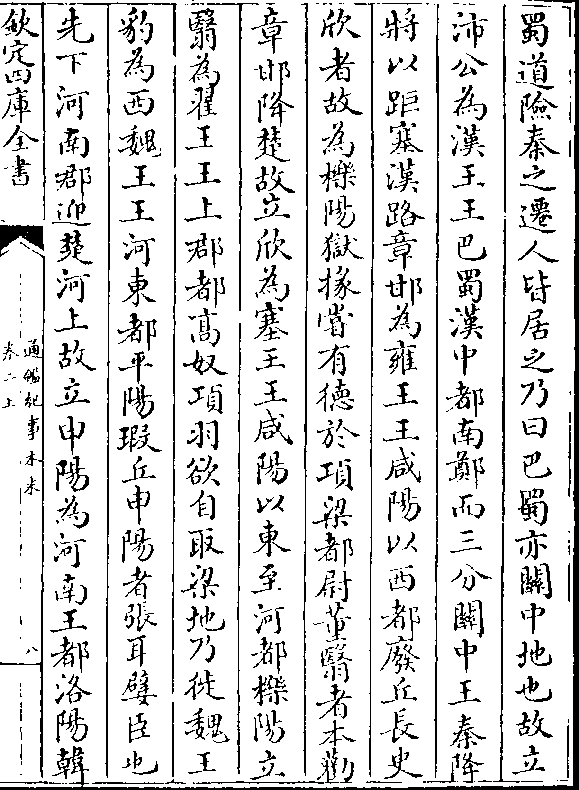 蜀道險秦之遷人皆居之乃曰巴蜀亦關中地也故立
沛公為漢王王巴蜀漢中都南鄭而三分關中王秦降
將以距塞漢路章邯為雍王王咸陽以西都廢丘長史
欣者故為櫟陽獄掾嘗有德於項梁都尉董翳者本勸
章邯降楚故立欣為塞王王咸陽以東至河都櫟陽立
翳為翟王王上郡都髙奴項羽欲自取梁地乃徙魏王
豹為西魏王王河東都平陽瑕丘申陽者張耳嬖臣也
先下河南郡迎楚河上故立申陽為河南王都洛陽韓
欽定四庫全書
通鑑紀事本末
卷二上
八